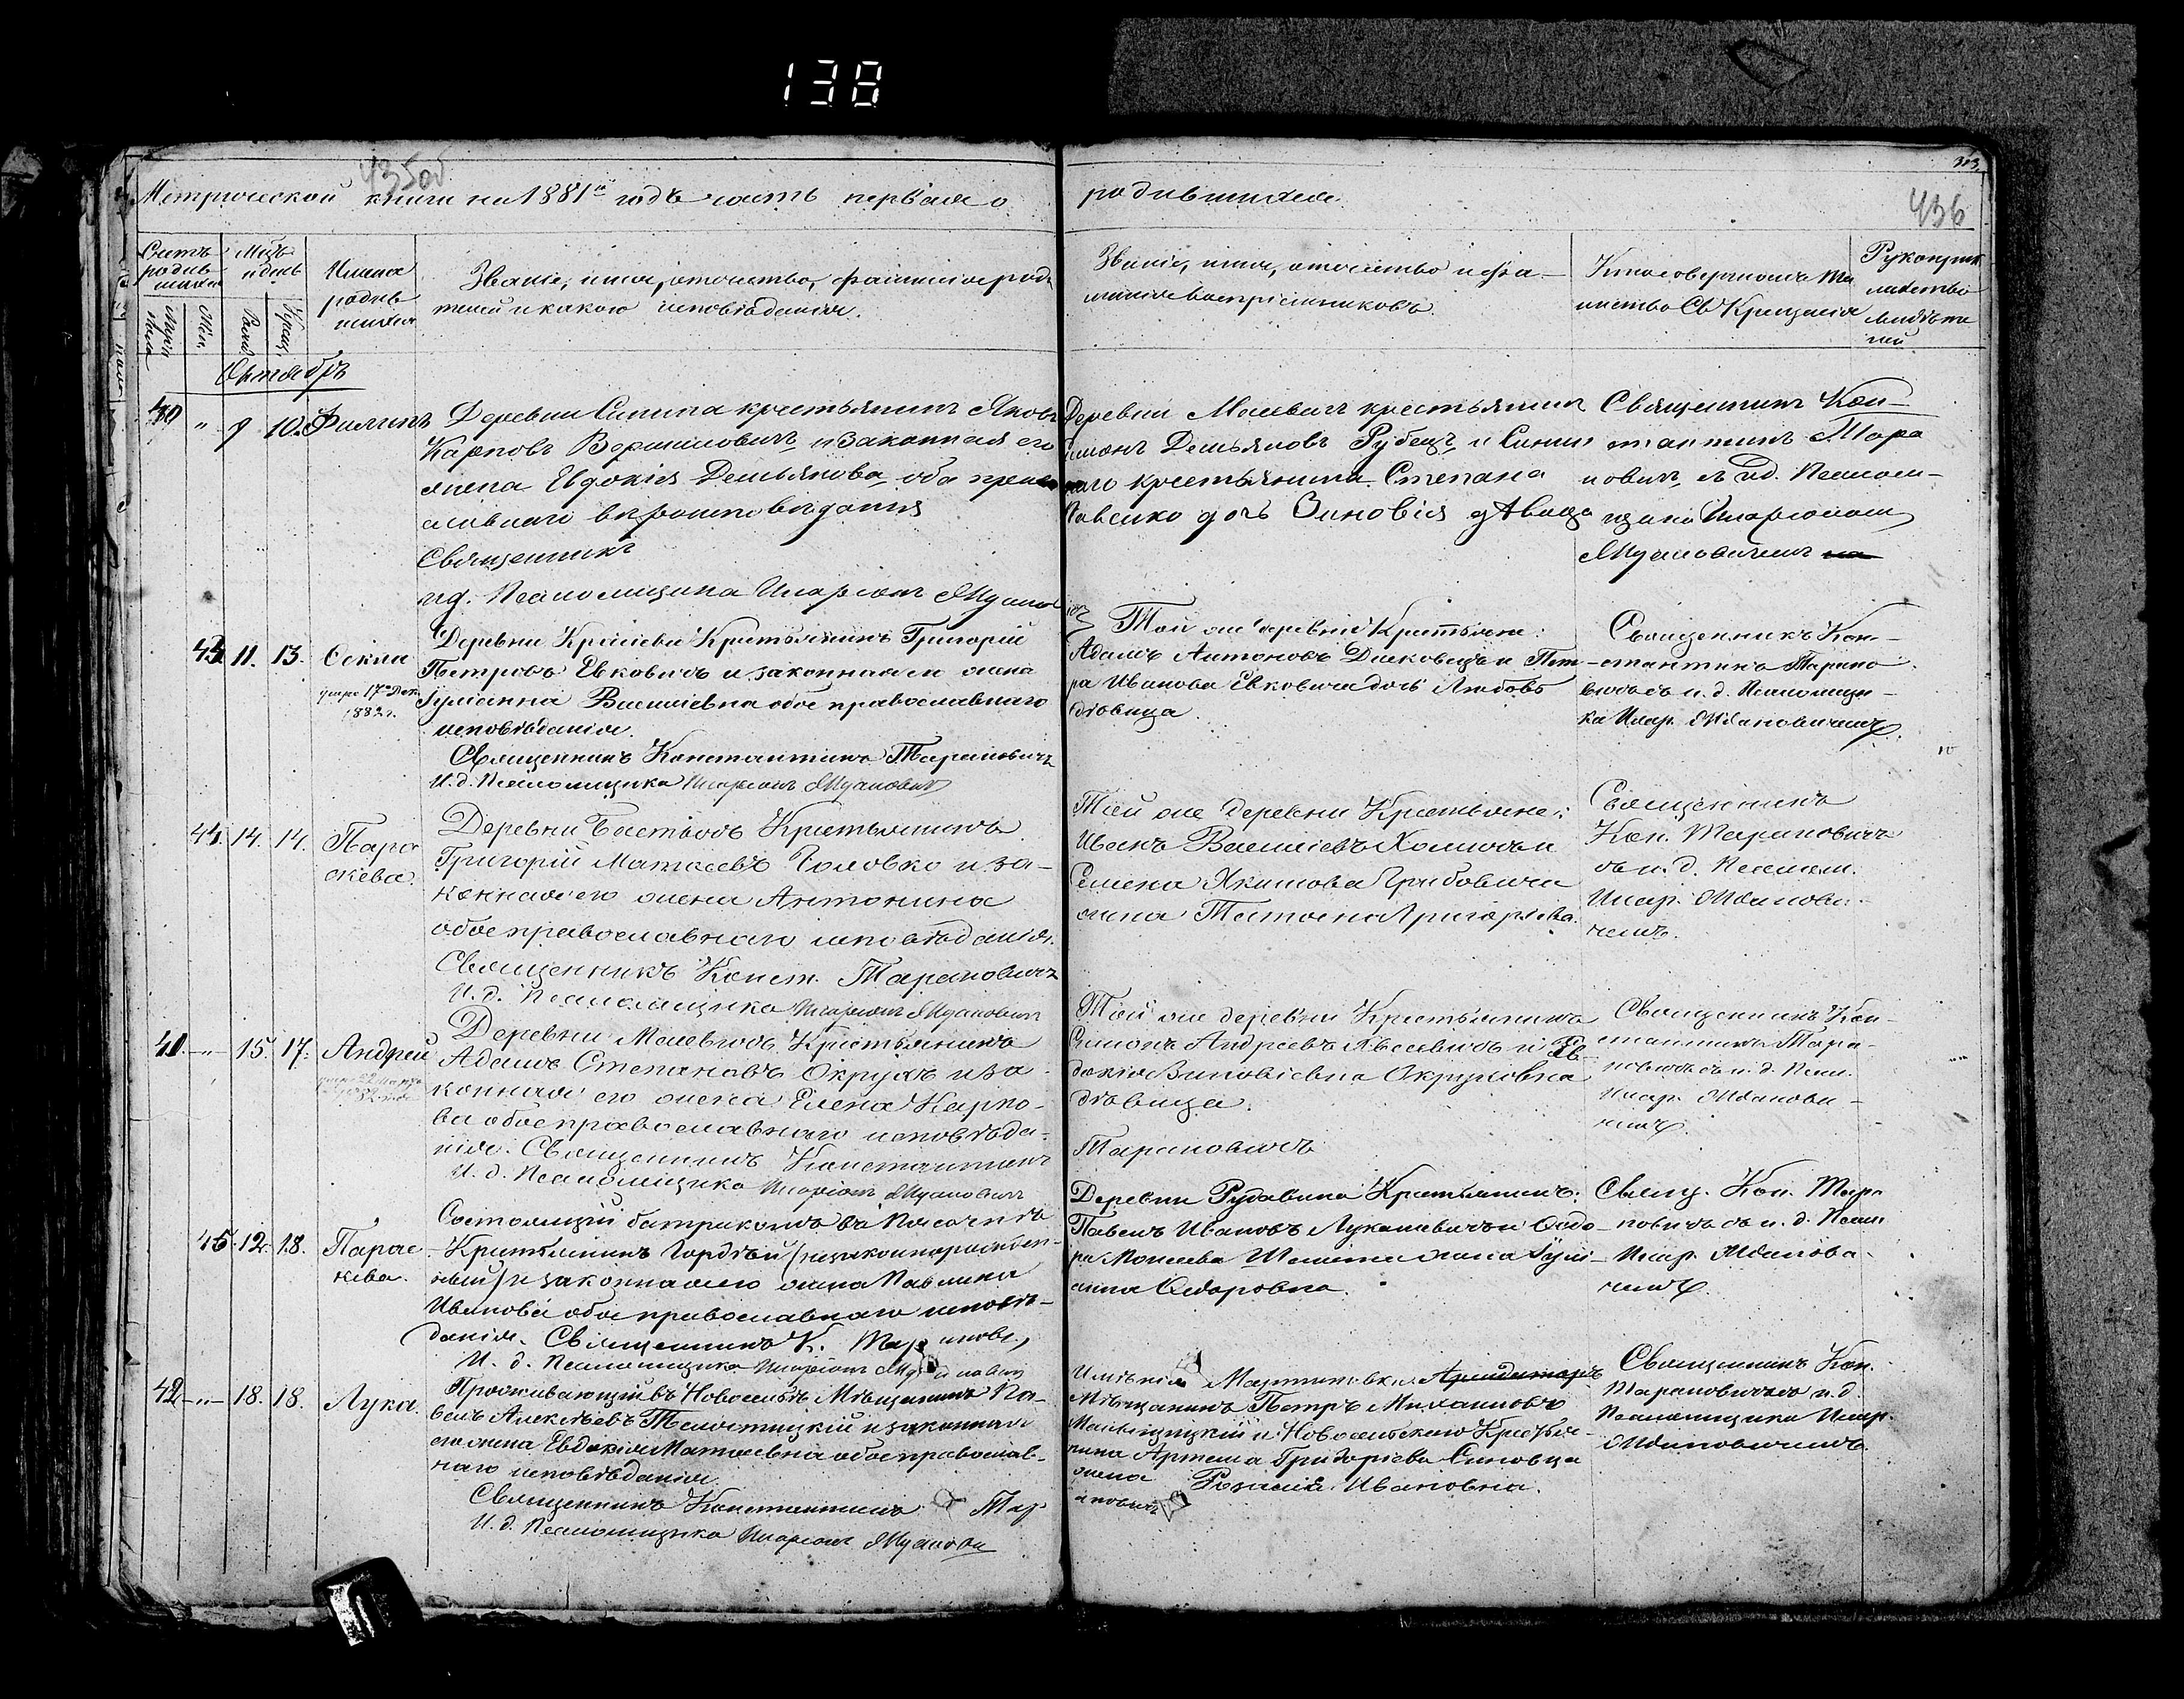 138
435об
313
436
Метрической книги на 1881й годъ часть первая о родившихся
Счетъ родившихся
Муж. пола
Жен.
Мѣс. и день
Рожд.
Крещ.
Имена родившихся
Званіе, имя, отчество, фамилія родителей и какого исповѣданія.
Званіе, имя, отчество и фамилія воспріемниковъ.
Кто совершалъ таинство Св. Крещенія
Рукоприкладство
Октябрь
40 " 9 10. Филипъ
Деревни Синина крестьянинъ Яковъ
Карповъ и законная его
жена Евдокія Демьянова, оба
православнаго вѣроисповѣданія
Священникъ
ид. Псаломщика Иларіонъ Ждановичъ
Деревни крестьянинъ
Демьяновъ Рубецъ и
крестьянина Степана
дочь Зиновія дѣвица
Священникъ Константинъ Тарановичъ
съ ид. Псаломщика Иларіономъ
Ждановичемъ
43. 11. 13. Ѳекла
умре 17го Дек.
1882 г.
Деревни Крестьянинъ Григорій
Петровъ Евковичъ и законная его жена
Іуліанна Василіевна обое православнаго
исповѣданія.
Священникъ Константинъ Тарановичъ
И. д. Псаломщика Иларіонъ Ждановичъ
Той же деревни Крестьяне:
Адамъ Антоновъ и Петра
Иванова Евковича дочь Любовь
дѣвица.
Священникъ Константинъ Тарановичъ
съ и. д. Псаломщика
Илар. Ждановичемъ.
44. 14. 14. Параскева.
Деревни Крестьянинъ
Григорій Матѳеевъ Головко и законная
его жена Антонина
обое православнаго исповѣданія.
Священникъ Конст. Тарановичъ
И. д. Псаломщика Иларіонъ Ждановичъ
Той же деревни Крестьяне:
Иванъ Василіевъ и
Семена Якимова Грибовича
жена Татіана Григоріева.
Священникъ
Кон. Тарановичъ
съ и. д. Псалом.
Илар. Ждановичемъ.
41. " 15. 17. Андрей
Деревни Крестьянинъ
Адамъ Степановъ Окрухъ и законная
его жена Елена Карпова
обое православнаго исповѣданія.
Священникъ Константинъ Тарановичъ
И. д. Псаломщика Иларіонъ Ждановичъ
Той же деревни Крестьянинъ
Симонъ Андреевъ и Евдокія
Зиновіевна Окруховна
дѣвица.
Священникъ Константинъ Тарановичъ
съ и. д. Псал.
Илар. Ждановичемъ.
45. 12. 18. Параскева.
Состоящій батракомъ въ
Крестьянинъ Гордѣй (незаконнорожденный)
и законная его жена Павлина
Иванова обое православнаго исповѣданія.
Священникъ К. Тарановичъ,
И. д. Псаломщика Иларіонъ Ждановичъ
Деревни Рудавина Крестьянинъ:
Павелъ Ивановъ Лукашевичъ и
Моисеева жена Іуліанна
Священ. Кон. Тарановичъ
съ и. д. Псал.
Илар. Ждановичемъ.
42. " 18. 18. Лука.
Проживающій въ Новосельѣ Мѣщанинъ Павелъ
Алексѣевъ и законная
его жена Евдокія Матѳеевна обое православнаго
исповѣданія
Священникъ Константинъ Тарановичъ
И. д. Псаломщика Иларіонъ Ждановичъ
Имѣнія
Мѣщанинъ Петръ Михайловъ
и Новосельскаго Крестьянина
Артема Григоріева
жена Розалія Ивановна.
Священникъ Кон.
Тарановичъ съ и. д.
Псаломщика Илар.
Ждановичемъ